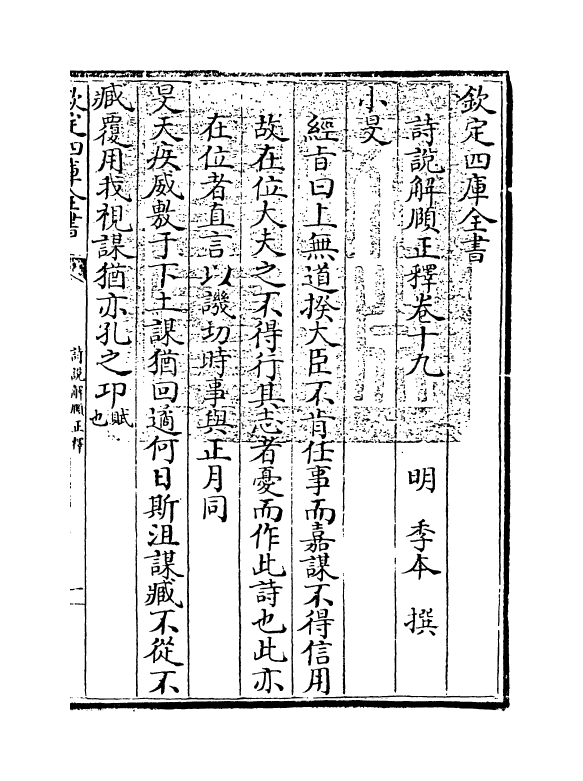 欽定四庫全書
詩說解頤正釋卷十九
明 季本 撰
小旻
經旨曰上無道揆大臣不肯任事而嘉謀不得信用
故在位大夫之不得行其志者憂而作此詩也此亦
在位者直言以譏切時事與正月同
旻天疾威敷于下土謀猶回遹何日斯沮謀臧不從不
臧覆用我視謀猶亦孔之卭賦也
欽定四庫全書
詩說解頤正釋
一